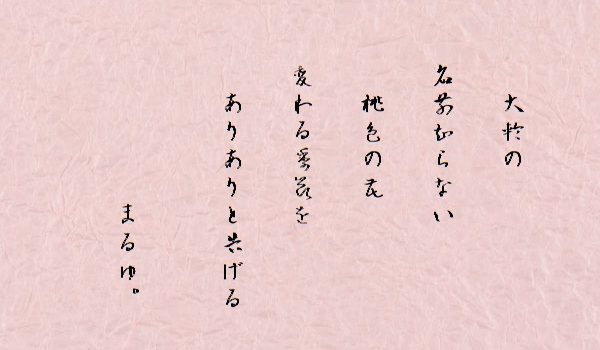 大輪の
名前知らない
桃色の花
変わる季節を
ありありと告げる
まるゆ。